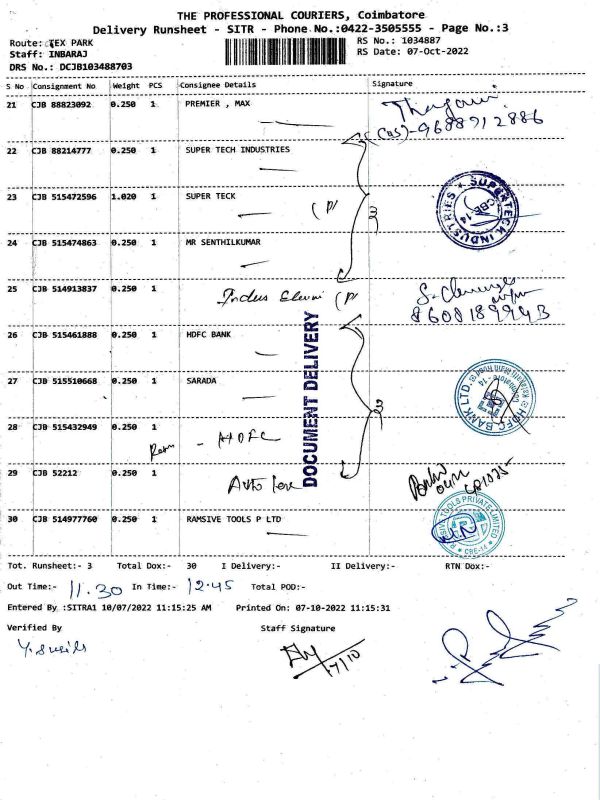 THE PROFESSIONAL COURIERS, Coimbatore
Delivery Runsheet - SITR - Phone No.:0422-3505555 - Page No.:3
Route: TEX PARK
RS No.: 1034887
Staff: INBARAJ
RS Date: 07-Oct-2022
DRS No.: DCJB103488703
S No Consignment No Weight PCS Consignee Details Signature
21 CJB 88823092 0.250 1 PREMIER , MAX
9688912886
22 CJB 88214777 0.250 1 SUPER TECH INDUSTRIES
23 CJB 515472596 1.020 1 SUPER TECK
SUPER TECK INDUSTRIES * CBE-14
24 CJB 515474863 0.250 1 MR SENTHILKUMAR
25 CJB 514913837 0.250 1
8608189943
26 CJB 515461888 0.250 1 HDFC BANK
27 CJB 515510668 0.250 1 SARADA
HDFC BANK LTD.
DOCUMENT DELIVERY
28 CJB 515432949 0.250 1 - HDFC
29 CJB 52212 0.250 1 Auto
30 CJB 514977760 0.250 1 RAMSIVE TOOLS P LTD
RAMSIVE TOOLS PRIVATE LIMITED * CBE-14 *
Tot. Runsheet:- 3 Total Dox:- 30 I Delivery:- II Delivery:- RTN Dox:-
Out Time:- 11.30 In Time:- 12.45 Total POD:-
Entered By :SITRA1 10/07/2022 11:15:25 AM Printed On: 07-10-2022 11:15:31
Verified By Staff Signature
7/10